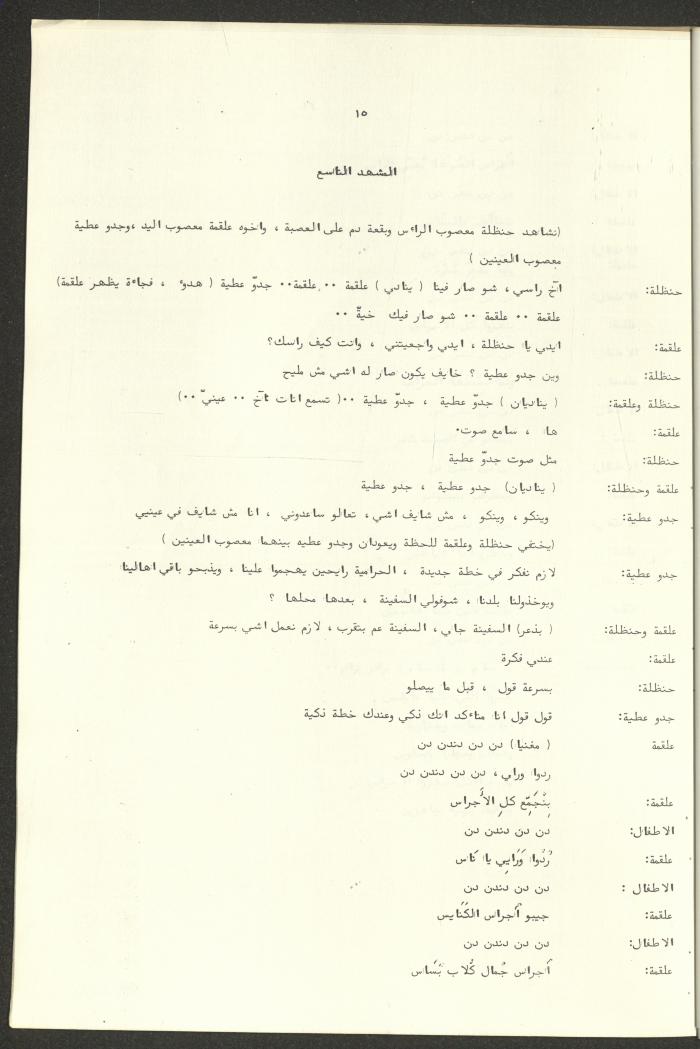 ١٥
المشهد التاسع
(نشاهد حنظلة معصوب الرأس وبقعة دم على العصبة ، واخوه علقمة معصوب اليد ،وجدو عطية
معصوب العينين )
حنظلة: آخ راسي، شو صار فينا ( ينادي ) علقمة ٠٠ علقمة٠٠ جدوّ عطية ( هدوء ، فجاءة يظهر علقمة)
علقمة ٠٠ علقمة ٠٠ شو صار فيك خيةّ ٠٠
علقمة: ايدي يا حنظلة ، ايدي واجعيتني ، وانت كيف راسك؟
حنظلة: وين جدو عطية ؟ خايف يكون صار له اشي مش مليح
حنظلة وعلقمة: ( يناديان ) جدوّ عطية ، جدوّ عطية ٠٠( تسمع انات تآخ ٠٠ عينيّ ٠٠)
علقمة: ها ، سامع صوت٠
حنظلة: مثل صوت جدوّ عطية
علقمة وحنظلة: ( يناديان) جدو عطية ، جدو عطية
جدو عطية: وينكو ، وينكو ، مش شايف اشي، تعالو ساعدوني ، انا مش شايف في عينيي
(يختفي حنظلة وعلقمة للحظة ويعودان وجدو عطيه بينهما معصوب العينين )
جدو عطية: لازم نفكر في خطة جديدة ، الحرامية رايحين يهجموا علينا ، ويذبحو باقي اهالينا
ويوخذولنا بلدنا ، شوفولي السفينة ، بعدها محلها ؟
علقمة وحنظلة: ( بذعر) السفينة جاي، السفينة عم بتقرب ، لازم نعمل اشي بسرعة
علقمة: عندي فكرة
حنظلة: بسرعة قول ، قبل ما ييصلو
جدو عطية: قول قول انا متاءكد انك ذكي وعندك خطة ذكية
علقمة ( مغنيا) دن دن دندن دن
ردوا وراي، دن دن دندن دن
علقمة: بِنْجَمِّع كلِ الأَجراس
الاطفال: دن دن دندن دن
علقمة: رُدوا وَرَايِي يا نَاس
الاطفال : دن دن دندن دن
علقمة: جيبو أَجراس الكَنَايس
الاطفال: دن دن دندن دن
علقمة: أَجراس جْمال كْلاب بْسَاس